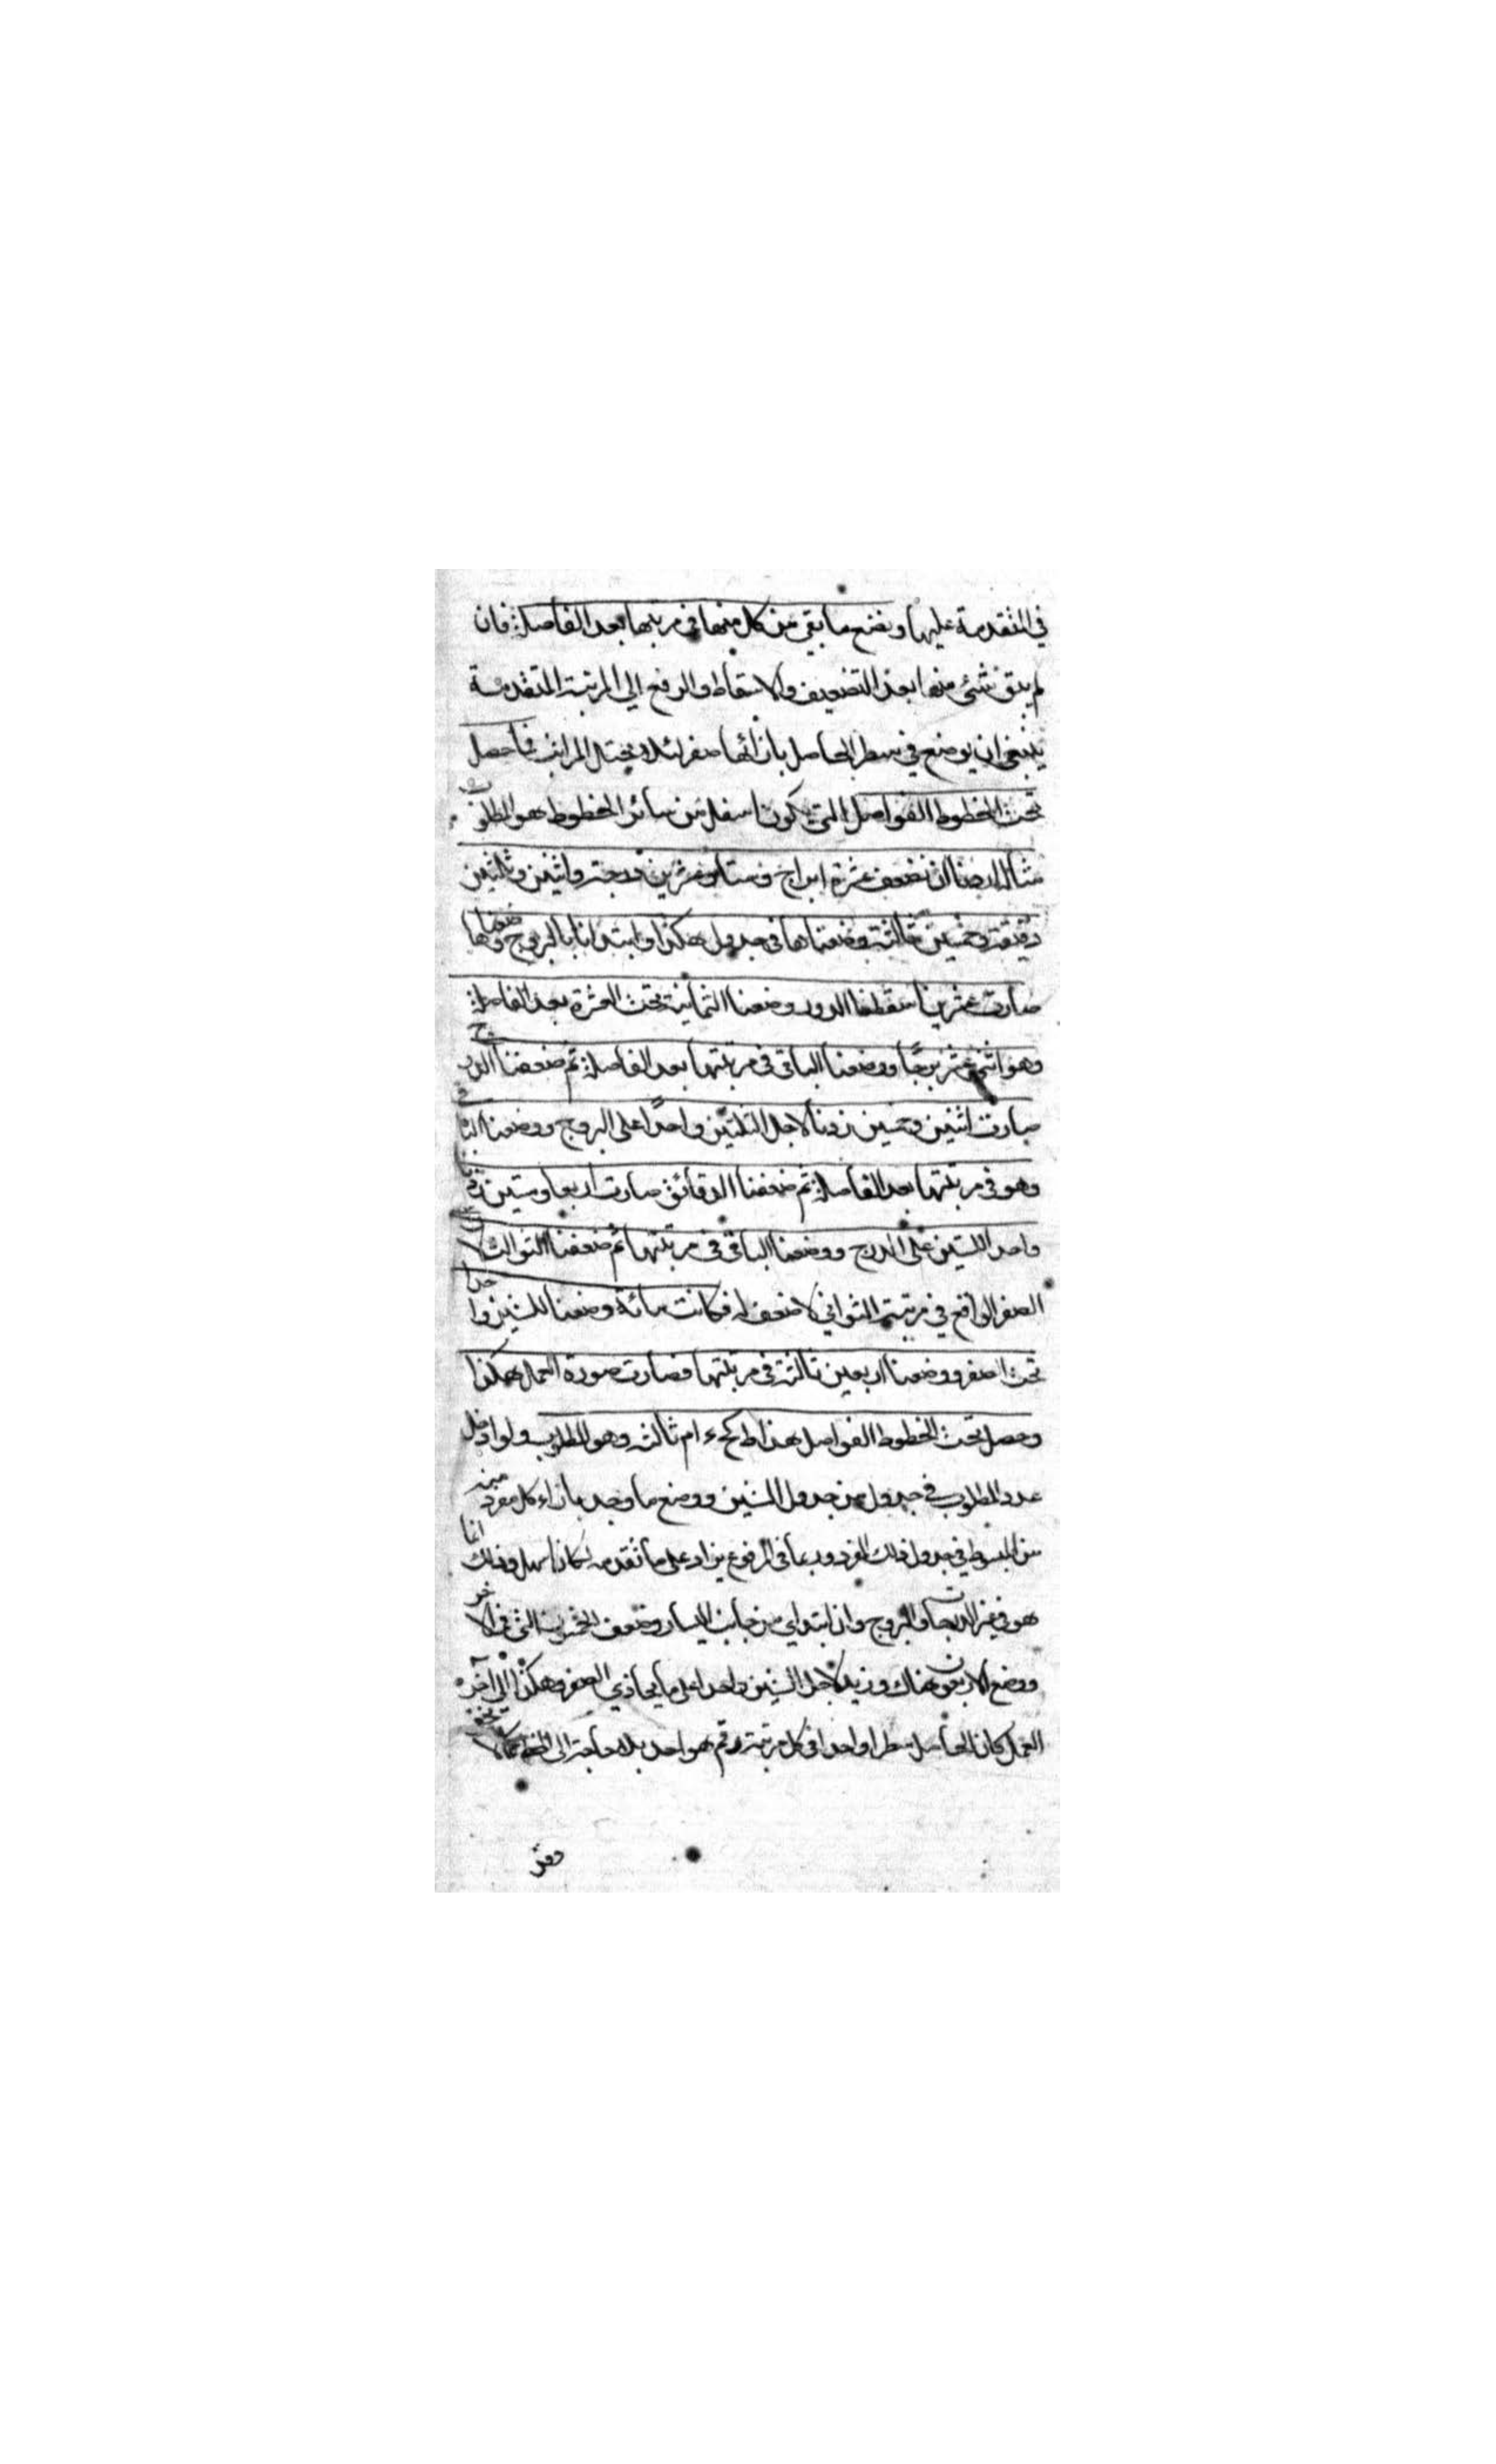 في المتقدمة عليها ويضع ما بقي من كل منها في مرتبتها بعد الفاصلة فان
لم يبق شئ منها بعد التضعيف والاسقاط والرفع الي المرتبة المتقدمة
ينبغي ان يوضع في سطر الحاصل بازائها صفر لئلا يختل المراتب فما حصل
تحت الخطوط الفواصل التي يكون اسفل من سائر الخطوط هو المطلوب
مثاله اردنا ان نضعف عشرة ابراج وستا وعشرين درجة واثنين وثلثين
دقيقة وخمسين ثالثة وضعناها في جدول هكذا وابتدانا بالبروج وضعفناها
صارت عشرين اسقطنا الدور وضعنا الثمانية تحت العشرة بعد الفاصلة
وهو اثنى عشر برجا ووضعنا الباقي في مرتبتها بعد الفاصلة ثم ضعفنا الدرج
صارت اثنين وخمسين زدنا لاجل الثلثين واحدا على البروج ووضعنا الباقي
وهو في مرتبتها بعد الفاصلة ثم ضعفنا الدقائق صارت اربعا وستين زدنا
واحدا للستين على الدرج ووضعنا الباقي في مرتبتها ثم ضعفنا الثوالث لان
الصفر الواقع في مرتبة الثواني لا ضعف له فكانت مائة وضعنا للستين واحدا
تحت الصفر ووضعنا اربعين ثالثة في مرتبتها فصارت صورة العمل هكذا
وحصل تحت الخطوط الفواصل هذا ط كج ء ا م ثالثه وهو المطلوب ولو ادخل
عدد المطلوب في جدول من جدول الستين ووضع ما وجد بازاء كل مفرد منه
من المبسوط في جدول ذلك المفرد وربما في المرفوع يزاد على ما تقدمه لكان اسهل وذلك انما
هو في غير الدرجات والبروج وان ابتداي من جانب اليسار وضعف الخمسون التي في الاخر
ووضع الاربعون هناك وزيد لاجل الستين واحد على ما يحاذي الصفر وهكذا الى آخر
العمل كان الحاصل سطرا واحدا في كل مرتبة رقم هو احد بلا حاجة الى